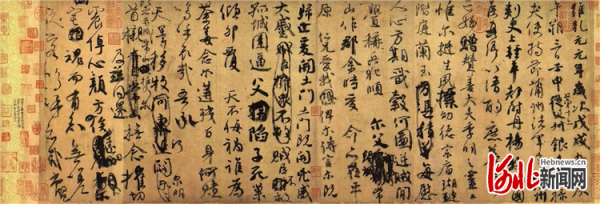 維乾元元年歲次戊戌九月庚
午朔三日壬申第十三叔銀青光祿
夫使持節蒲州諸軍事蒲州
刺史上輕車都尉丹楊縣開國
侯真卿以清酌庶羞祭于
亡姪贈贊善大夫季明之靈
惟爾挺生夙標幼德宗廟瑚璉
階庭蘭玉每慰
人心方期戩穀何圖逆賊閒
釁稱兵犯順爾父
常山作郡余時受命亦在平
原仁兄愛我俾爾傳言爾既
歸止爰開土門土門既開凶威
大蹙賊臣不救
孤城圍逼父陷子死巢
傾卵覆天不悔禍誰為
荼毒念爾遘殘百身何贖
嗚乎哀哉吾承
天澤移牧河關泉明
首櫬及茲同還撫念摧切
震悼心顏方俟
魂而有知無嗟久客
Hebnews.cn
河北新闻网